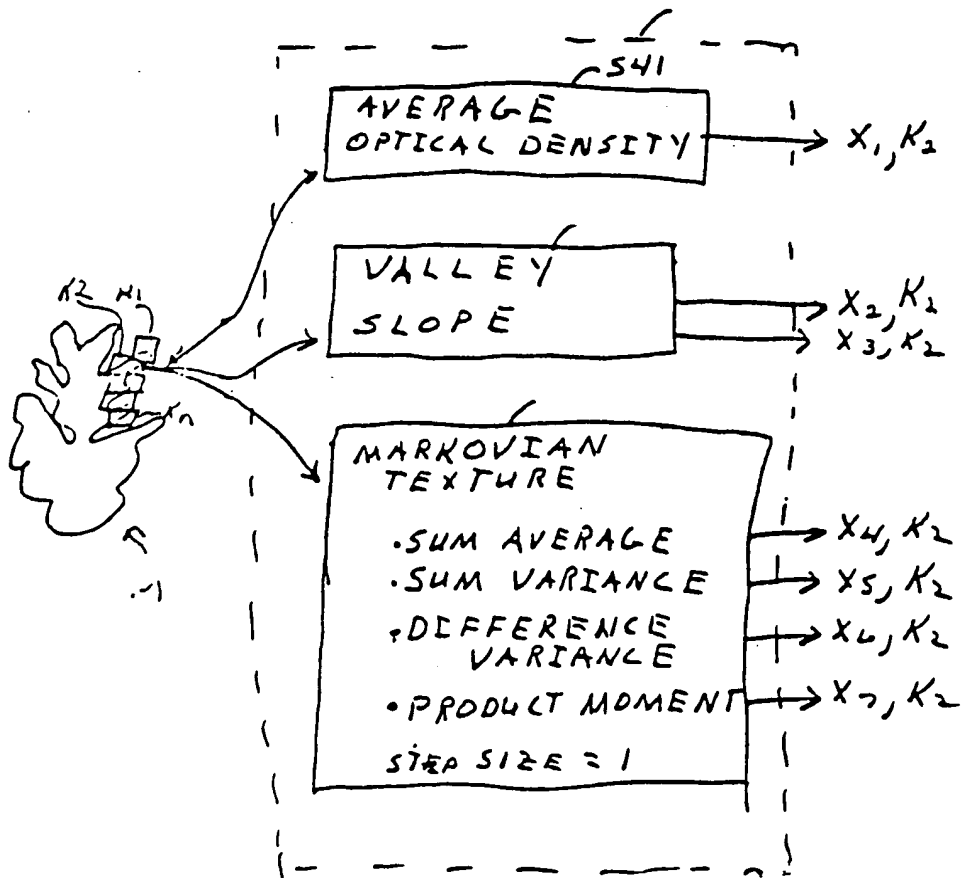 S41
AVERAGE
OPTICAL DENSITY
X1, K2
VALLEY
SLOPE
X2, K2
X3, K2
K2
K1
Kn
MARKOVIAN
TEXTURE
•SUM AVERAGE
•SUM VARIANCE
•DIFFERENCE
VARIANCE
•PRODUCT MOMENT
STEP SIZE = 1
X4, K2
X5, K2
X6, K2
X7, K2